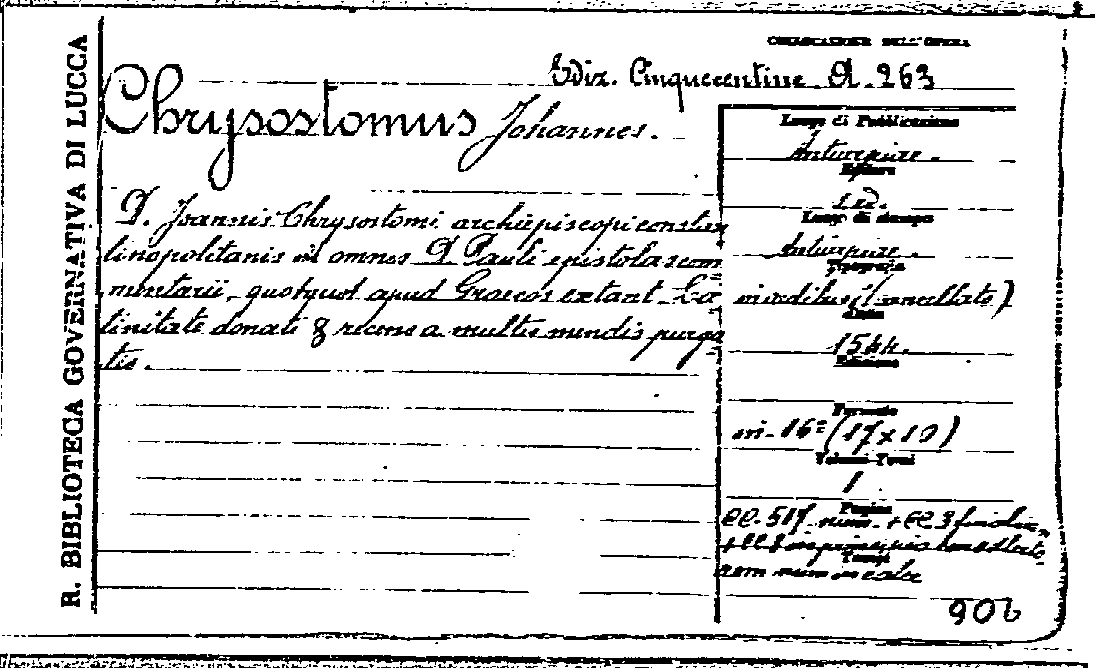 R. BIBLIOTECA GOVERNATIVA DI LUCCA
COLLOCAZIONE DELL'OPERA
Ediz. Cinquecentine A. 263
Chrysostomus Johannes.
D. Joannis Chrysostomi archiepiscopi constan
tinopolitanis in omnes D. Pauli epistolas com
mentarii, quotquot apud Graecos extant La
tinitate donati & recens a multis mendis purga
tis.
Luogo di Pubblicazione
Antuerpiae.
Editore
Luogo di stampa
Antuerpiae.
Tipografia
(cancellato)
Data
1544.
Edizione
Formato
in-16° (17x10)
Volumi-Tomi
1.
Pagine
cc. 517 num. + cc 3
+ cc 8 in principio
non num
906